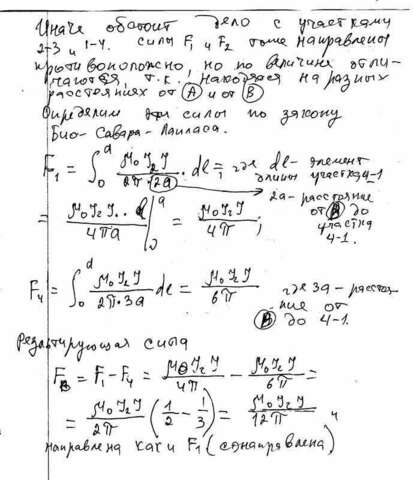 Иначе обстоит дело с участками
2-3 и 1-4. силы F₁ и F₂ тоже направлены
противоположно, но по величине отли-
чаются, т.к. находясь на разных
расстояниях от (A) и от (B)
Определим эти силы по закону
Био-Савара-Лапласа.
F₁ = ∫₀ᵃ μ₀I₂I / 2π·2a · dl = , где dl - элемент
длины участка 4-1
2a - расстояние
от (B) до
участка
4-1.
= μ₀I₂I·l / 4πa |₀ᵃ = μ₀I₂I / 4π ;
F₄ = ∫₀ᵃ μ₀I₂I / 2π·3a dl = μ₀I₂I / 6π
где 3a - расстоя-
ние от
(B) до 4-1.
Результирующая сила
F = F₁ - F₄ = μ₀I₂I / 4π - μ₀I₂I / 6π =
= μ₀I₂I / 2π (1/2 - 1/3) = μ₀I₂I / 12π и
направлена как и F₁ (сонаправлена)